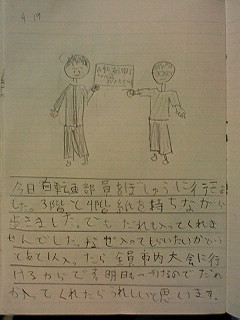 今日自転車部員をぼしゅうに行きま
した。3階と4階紙を持ちながら
歩きました。でもだれも入ってくれま
せんでした。なぜ入ってもらいたいかとい
うと
入ったら全員市内大会に行
けるからです明日
だれ
か入ってくれたらうれしいと思います。